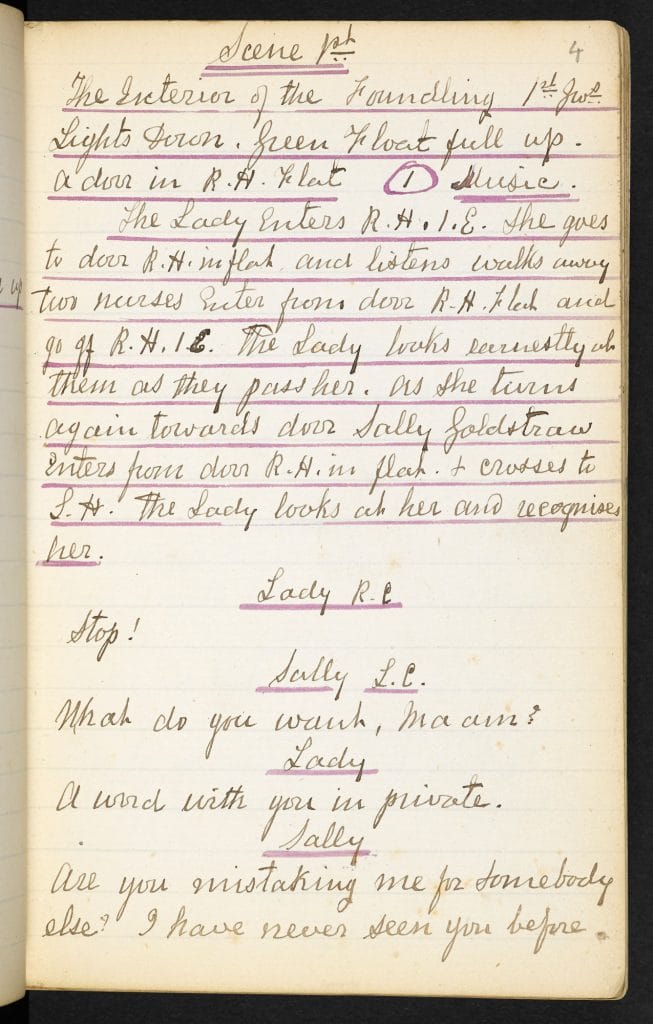 Scene 1st
4
The Exterior of the Foundling 1st Gro.
Lights Down. Green Float full up.
A door in R.H. Flat 1 Music.
The Lady Enters R.H.1.E. She goes
to door R.H. in flat and listens walks away
two nurses Enter from door R.H. Flat and
go off R.H.1E. The Lady looks earnestly at
them as they pass her. As she turns
again towards door Sally Goldstraw
Enters from door R.H. in flat. & crosses to
L.H. The Lady looks at her and recognises
her.
Lady R.C
Stop!
Sally L.C.
What do you want, Maam?
Lady
A word with you in private.
Sally
Are you mistaking me for somebody
else? I have never seen you before.
up